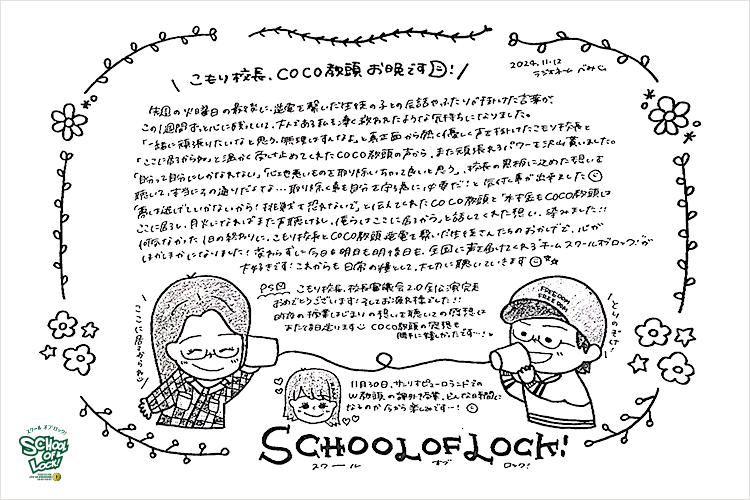 2024.11.12
ラジオネーム べみぃ
\ こもり校長、COCO教頭 お晩です！/
先週の火曜日の最後に、逆電で繋いだ生徒の子との会話やふたりが掛けた言葉が、
この1週間ずっと心に残っていて、大人である私も凄く救われたような気持ちになりました。
「一緒に頑張りたいなと思う、無理はすんなよ」と真正面から熱く優しく声を掛けたこもり校長と
「ここに居るからね」と温かく受け止めてくれたCOCO教頭の声から、また頑張れるパワーを沢山貰いました。
「自分って自分にしかなれない」「心地悪いものを取り除いちゃって良いと思う」、校長の黒板に込めた想いを
聴いて、本当にその通りだなぁ…取り除く事も自分を守る為に必要だ！と気付く事が出来ました
「夢は逃げていかないから！挑戦を恐れないで」と伝えてくれたCOCO教頭と「木才金もCOCO教頭は
ここに居るし、月火になればまた声聴けるし、俺らはここに居るから」と話してくれた想い、染みました!!
何気なかった1日の終わりに、こもり校長とCOCO教頭、逆電で繋いだ生徒さんたちのおかげで、心が
ぽかぽかになりました！変わらずに今日も明日も明後日も、全国に声を届けてくれるホームスクールオブロック！が
大好きです！これからも日常の糧として、大切に聴いていきます
PS こもり校長、校長審議会2.0全公演完走
おめでとうございます！そしてお疲れ様でした!!
昨夜の授業はじまりの想いを聴いての感想は
またで毎日送ります COCO教頭の感想も
勝手に嬉しかったです…！
ここに居るからねっ
とりのぞけ！
FREEDOM
FREEDOM
11月30日、サンリオピューロランドでの
W教頭の課外授業、どんな時間に
なるのか今から楽しみです…！
SCHOOL OF LOCK!
スクール オブ ロック！
スクール オブ ロック！
SCHOOL
OF
LOCK!